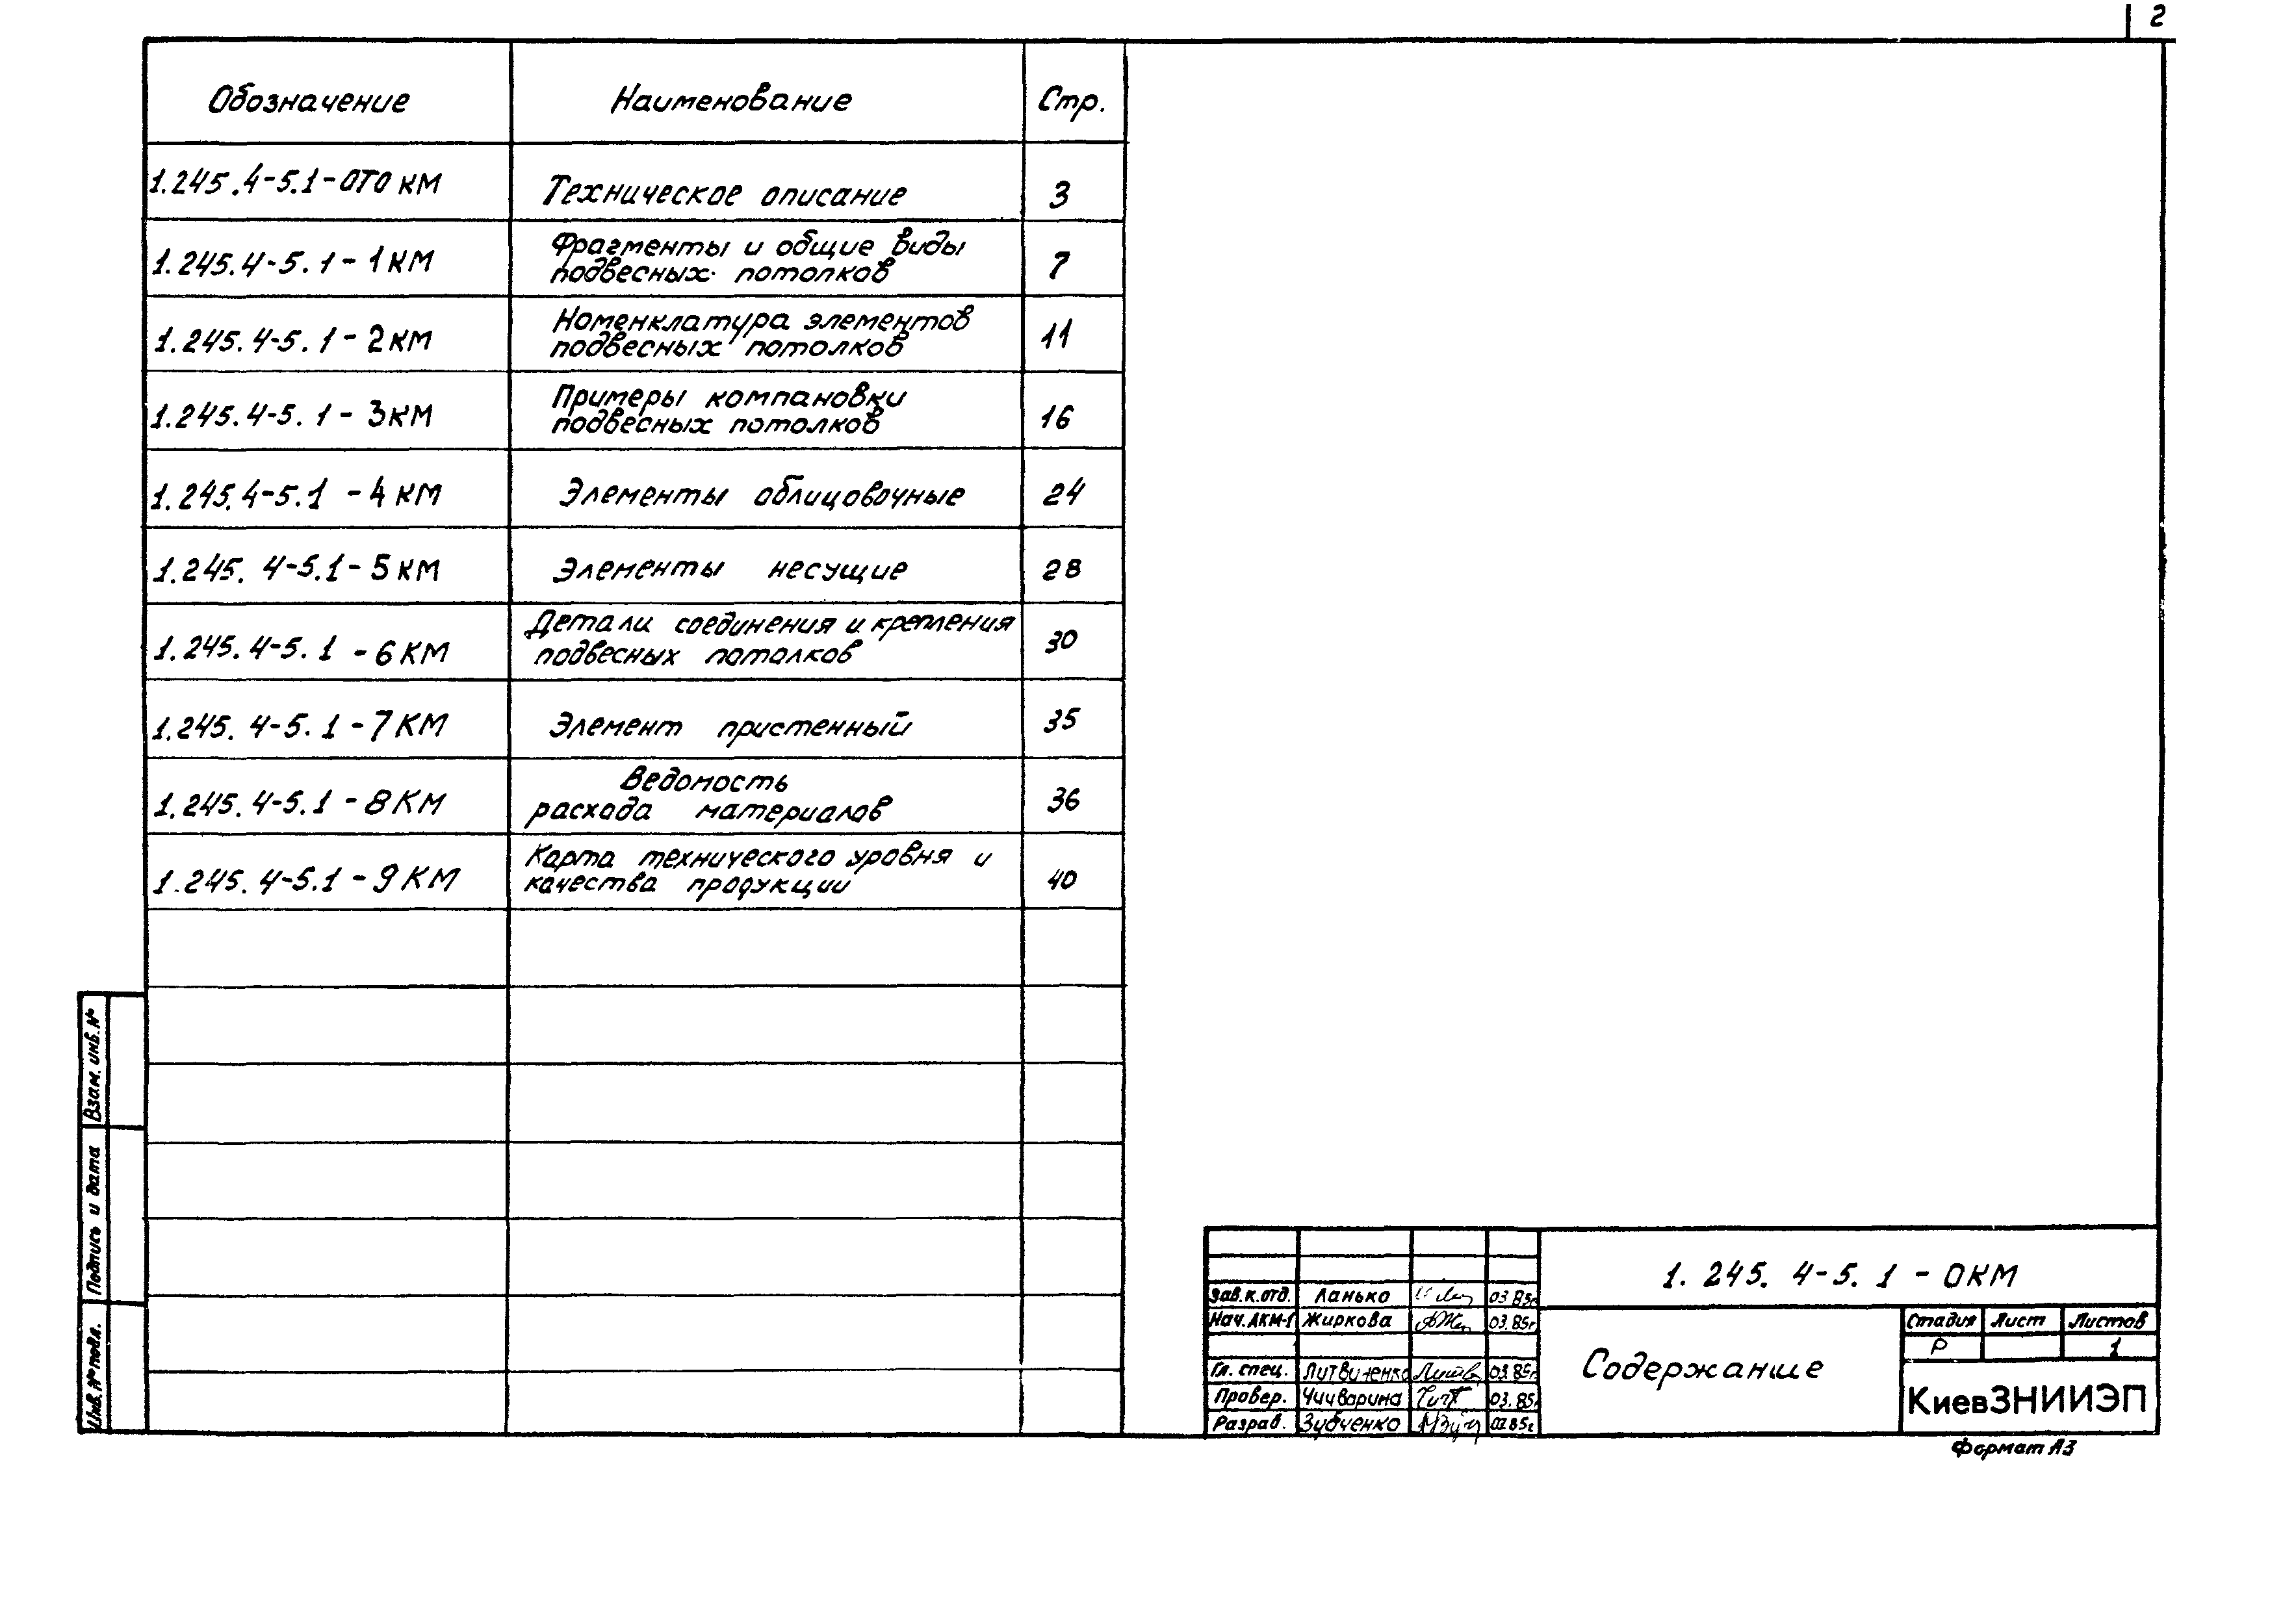 2
Обозначение Наименование Стр.
1.245.4-5.1-0ТО КМ Техническое описание 3
1.245.4-5.1-1КМ Фрагменты и общие виды
подвесных потолков 7
1.245.4-5.1-2КМ Номенклатура элементов
подвесных потолков 11
1.245.4-5.1-3КМ Примеры компановки
подвесных потолков 16
1.245.4-5.1-4КМ Элементы облицовочные 24
1.245.4-5.1-5КМ Элементы несущие 28
1.245.4-5.1-6КМ Детали соединения и крепления
подвесных потолков 30
1.245.4-5.1-7КМ Элемент пристенный 35
1.245.4-5.1-8КМ Ведомость
расхода материалов 36
1.245.4-5.1-9КМ Карта технического уровня и
качества продукции 40
Взам. инв. №
Подпись и дата
Инв. № подл.
1.245.4-5.1-0КМ
Зав.к.отд. Ланько 03.85г
Нач.АКМ-1 Жиркова 03.85г
Гл. спец. Литвиненко 03.85г
Провер. Чичварина 03.85г
Разраб. Зубченко 03.85г
Содержание
Стадия Лист Листов
Р 1
КиевЗНИИЭП
Формат А3